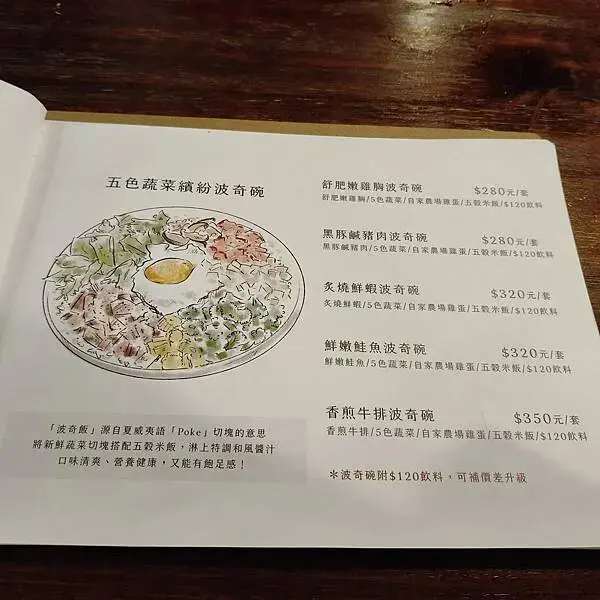 五色蔬菜繽紛波奇碗
「波奇飯」源自夏威夷語「Poke」切塊的意思
將新鮮蔬菜切塊搭配五穀米飯，淋上特調和風醬汁
口味清爽、營養健康，又能有飽足感！
舒肥嫩雞胸波奇碗 $280元/套
舒肥嫩雞胸/5色蔬菜/自家農場雞蛋/五穀米飯/$120飲料
黑豚鹹豬肉波奇碗 $280元/套
黑豚鹹豬肉/5色蔬菜/自家農場雞蛋/五穀米飯/$120飲料
炙燒鮮蝦波奇碗 $320元/套
炙燒鮮蝦/5色蔬菜/自家農場雞蛋/五穀米飯/$120飲料
鮮嫩鮭魚波奇碗 $320元/套
鮮嫩鮭魚/5色蔬菜/自家農場雞蛋/五穀米飯/$120飲料
香煎牛排波奇碗 $350元/套
香煎牛排/5色蔬菜/自家農場雞蛋/五穀米飯/$120飲料
＊波奇碗附$120飲料，可補價差升級